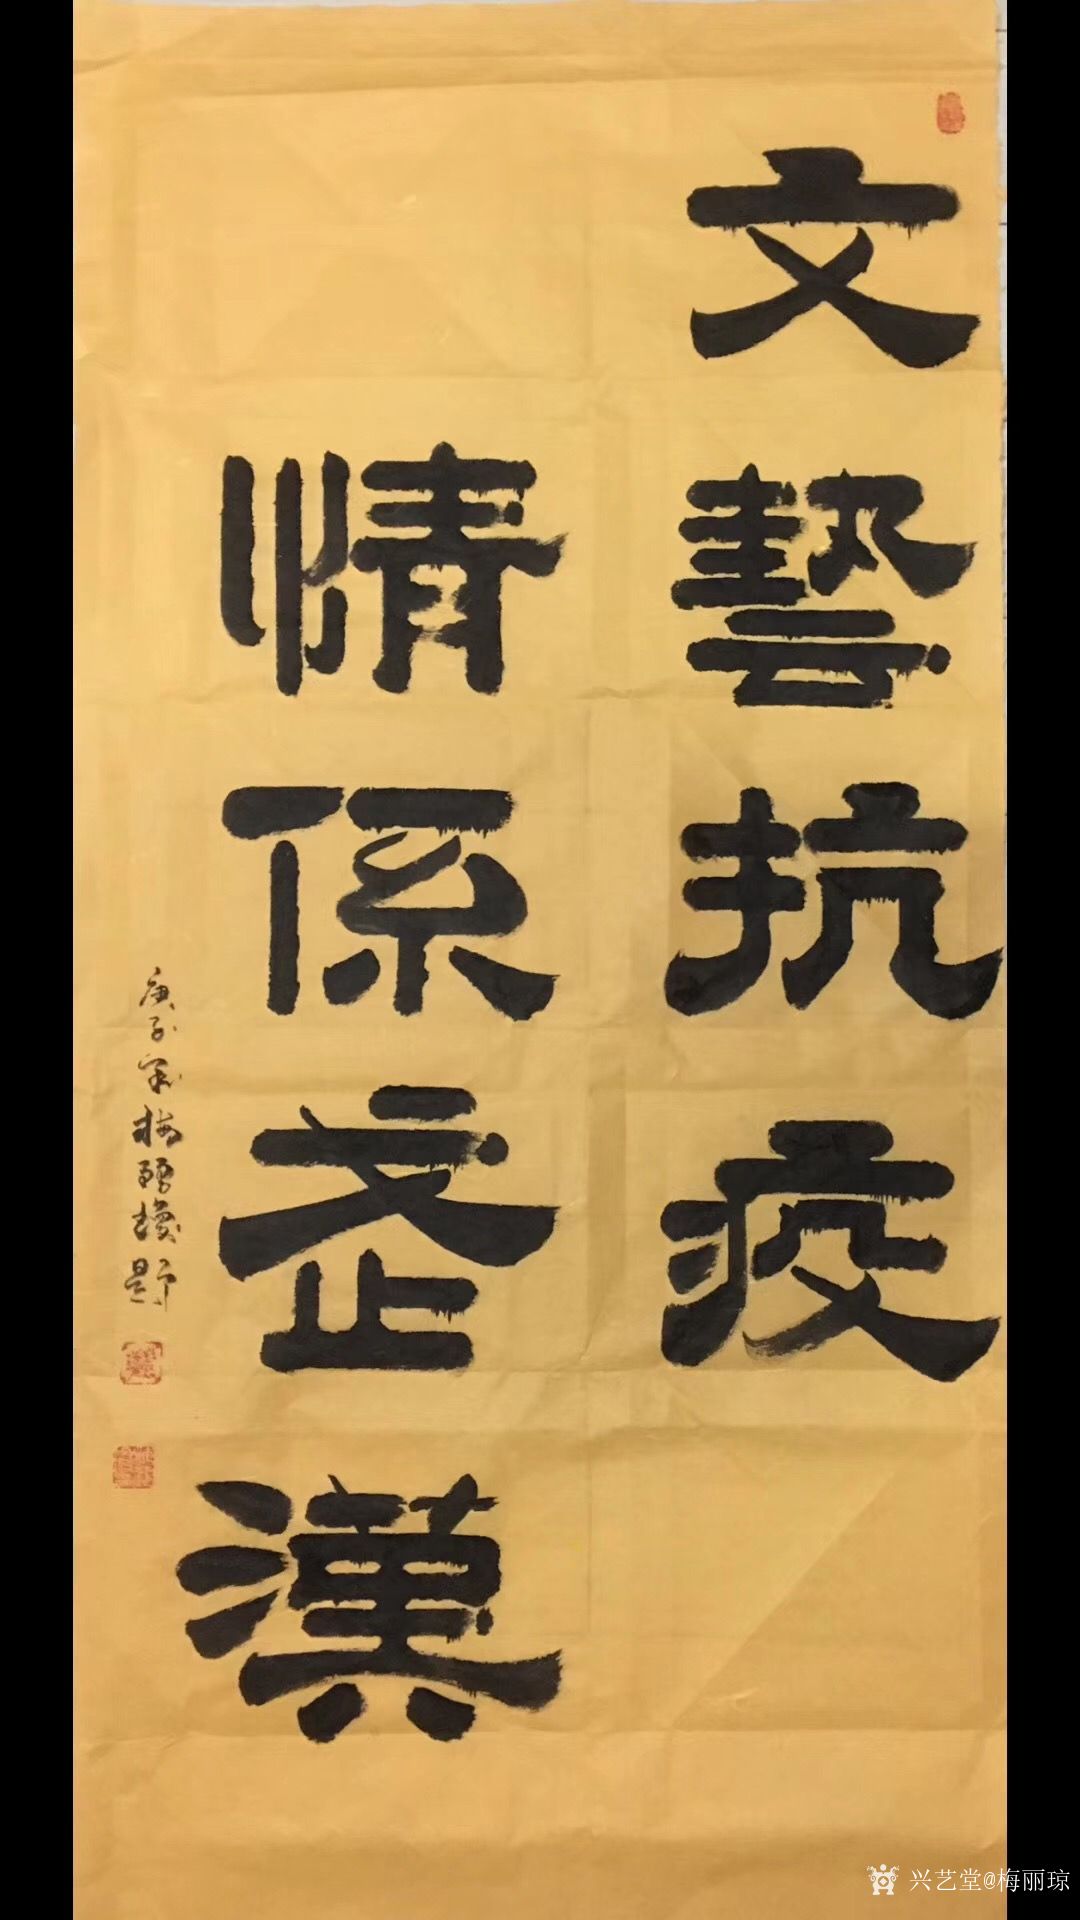 文藝抗疫
情係武漢
庚子年梅麗瓊题
兴艺堂@梅丽琼